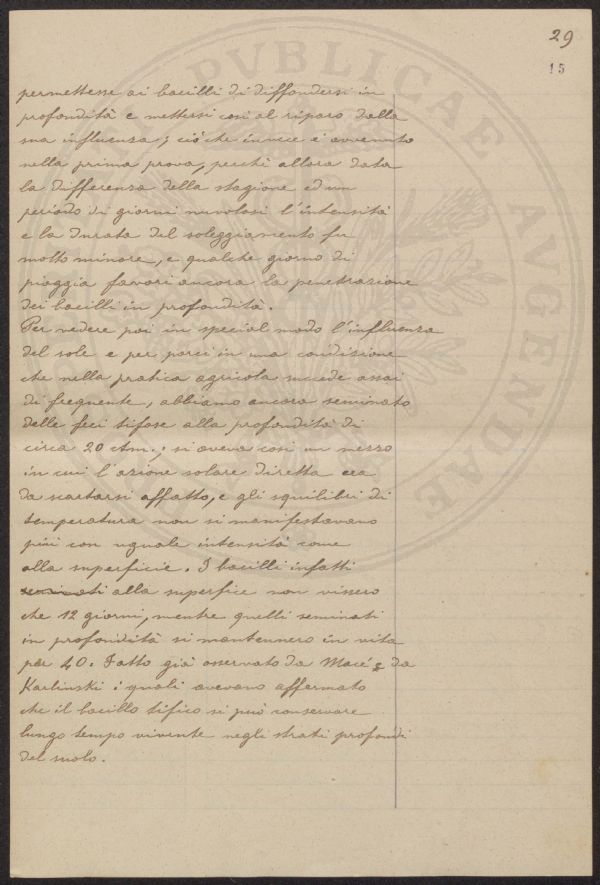 29
15
PVBLICAE AVGENDAE
permettesse ai bacilli di diffondersi in
profondità e mettersi così al riparo dalla
sua influenza; ciò che invece è avvenuto
nella prima prova, perchè allora data
la differenza della stagione ed un
periodo di giorni nuvolosi l'intensità
e la durata del soleggiamento fu
molto minore, e qualche giorno di
pioggia favorì ancora la penetrazione
dei bacilli in profondità.
Per vedere poi in special modo l'influenza
del sole e per porci in una condizione
che nella pratica agricola succede assai
di frequente, abbiamo ancora seminato
delle feci tifose alla profondità di
circa 20 ctm.; si aveva così un mezzo
in cui l'azione solare diretta era
da scartarsi affatto, e gli squilibri di
temperatura non si manifestavano
più con uguale intensità come
alla superficie. I bacilli infatti
seminati alla superfice non vissero
che 12 giorni, mentre quelli seminati
in profondità si mantennero in vita
per 40. Fatto già osservato da Macé e da
Karlinski i quali avevano affermato
che il bacillo tifico si può conservare
lungo tempo vivente negli strati profondi
del suolo.